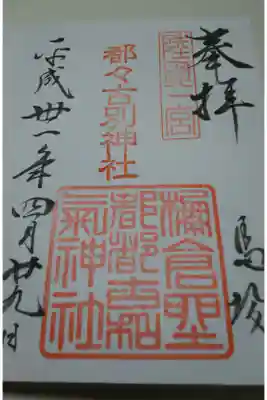 奉拝
陸奥一宮
馬場
都々古別神社
棚倉
都都古和
氣神社
平成卅一年四月廿九日